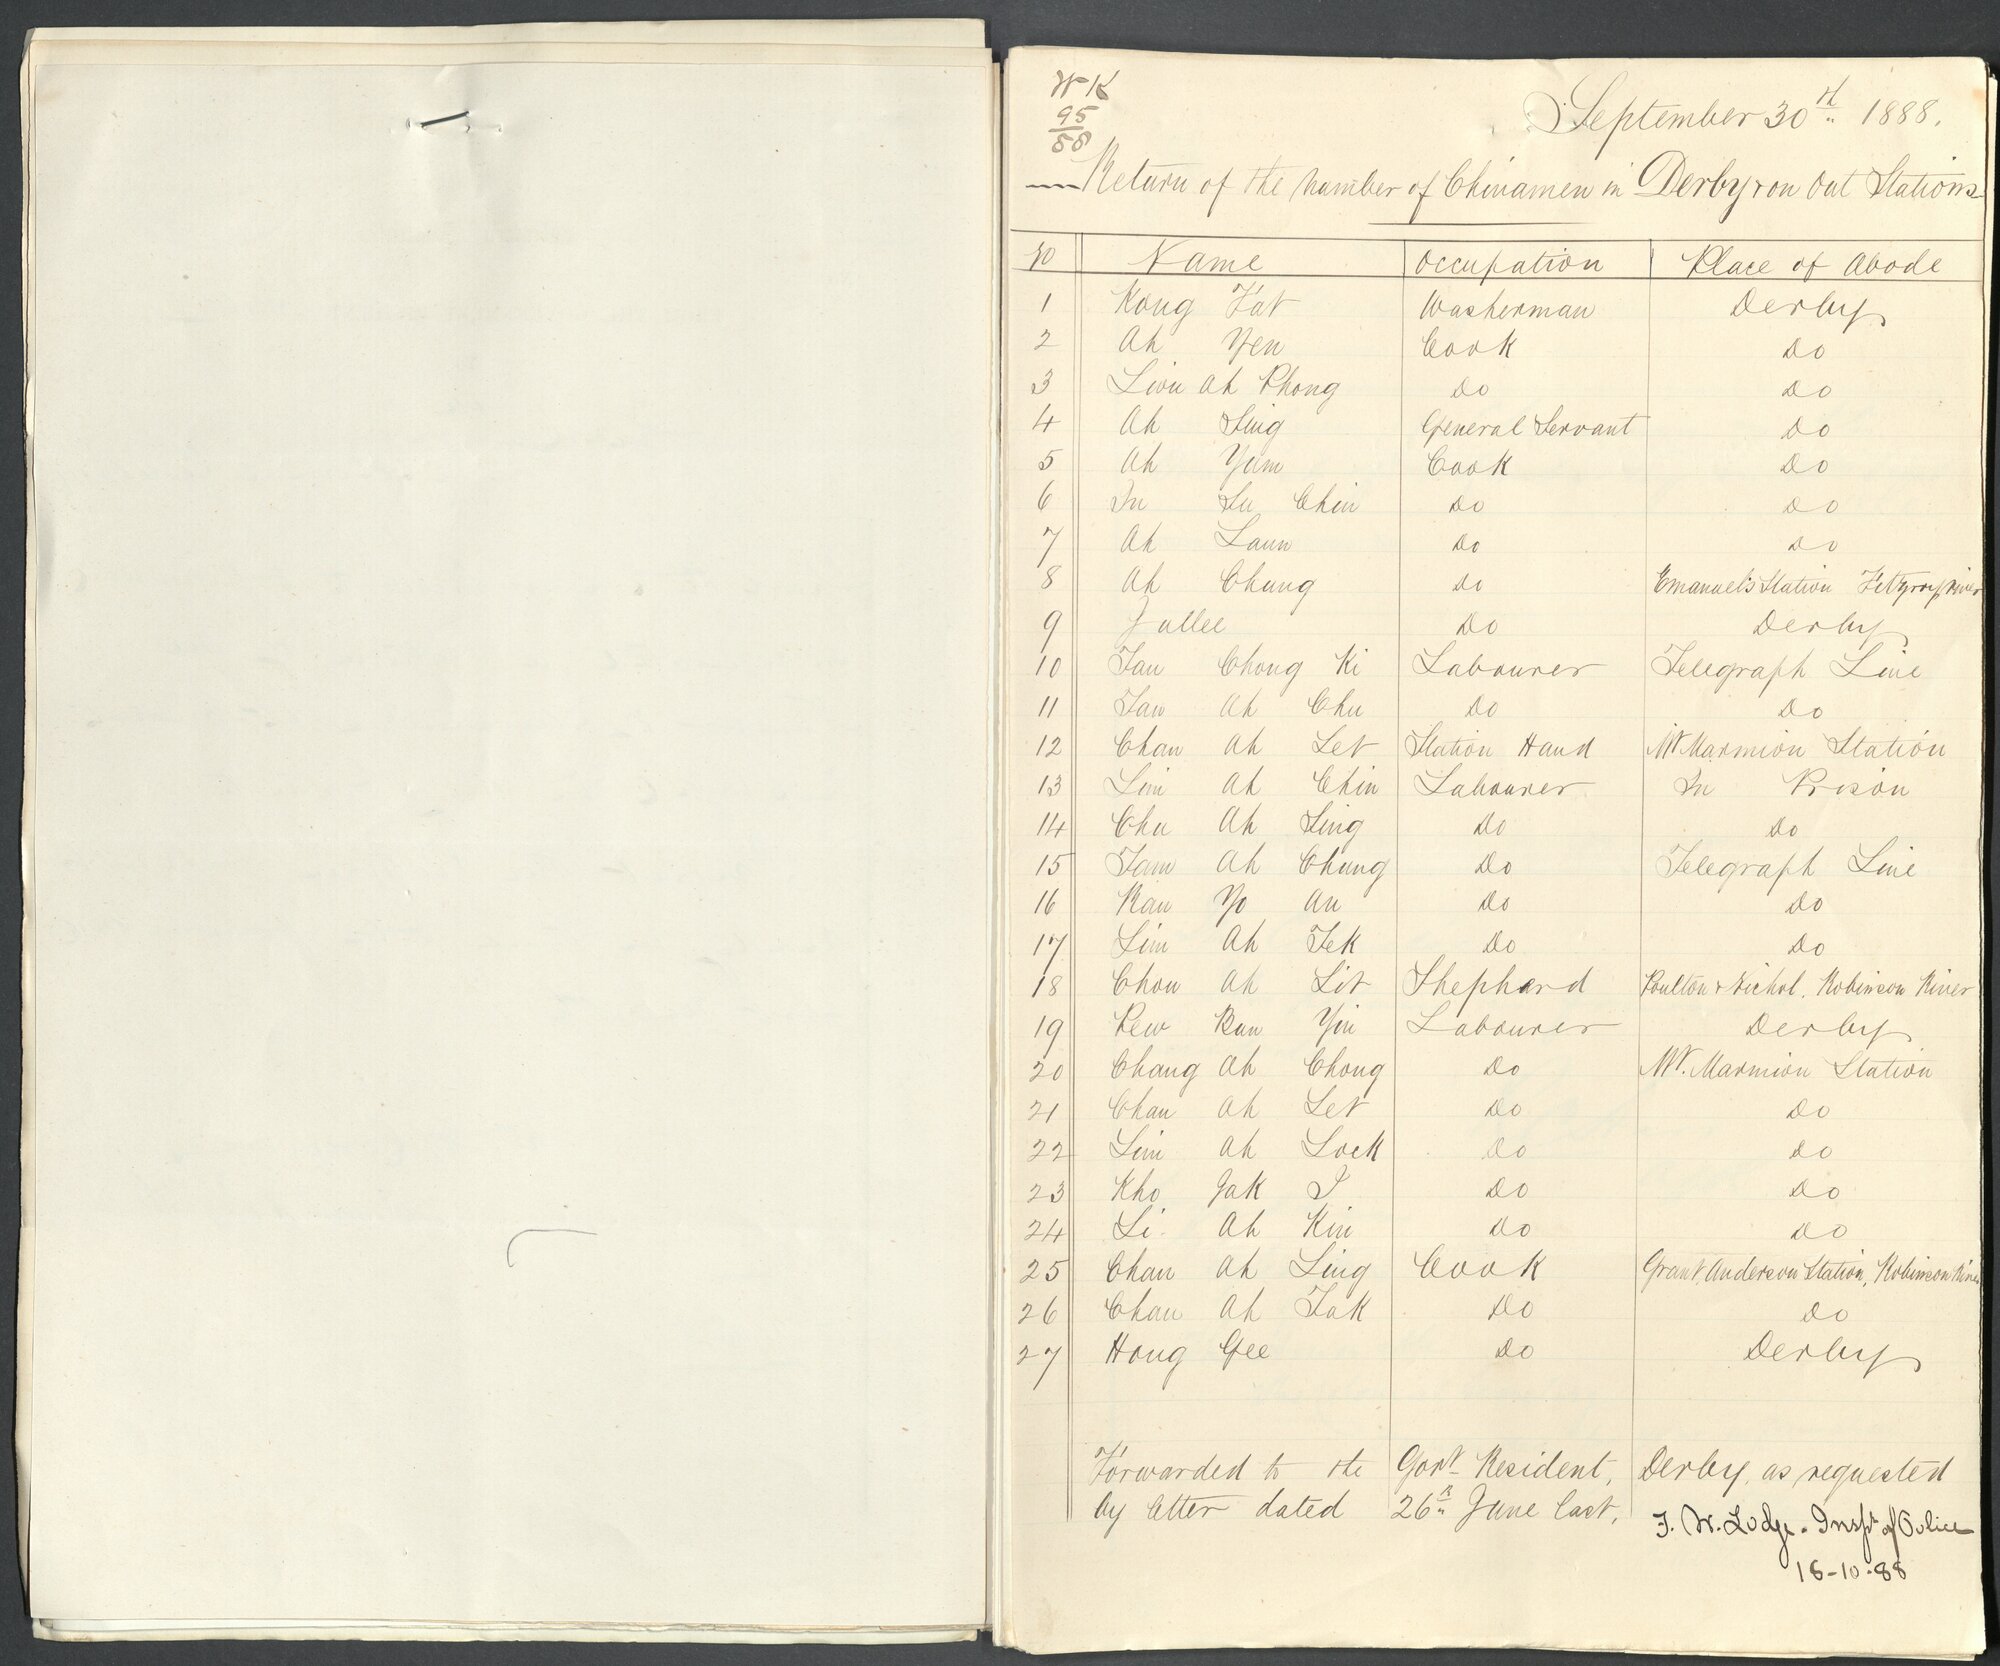 WK
95/88
September 30th 1888.
Return of the number of Chinamen in Derby & on Out Stations
No Name Occupation Place of Abode
1 Kong Fat Washerman Derby
2 Ah Yen Cook Do
3 Liou Ah Phong Do Do
4 Ah Sing General Servant Do
5 Ah Yum Cook Do
6 Su Chin Do Do
7 Ah Laun Do Do
8 Ah Chung Do Emanuel's Station Fitzroy River
9 Jullee Do Derby
10 Tan Chong Ki Labourer Telegraph Line
11 Tan Ah Chu Do Do
12 Chan Ah Let Station Hand Mt Marmion Station
13 Lim Ah Chin Labourer In Prison
14 Chu Ah Sing Do Do
15 Tam Ah Chung Do Telegraph Line
16 Kan Yo An Do Do
17 Lim Ah Tek Do Do
18 Chou Ah Lit Shephard Poulton & Nichol, Robinson River
19 Pew Ban Yin Labourer Derby
20 Chang Ah Chong Do Mt. Marmion Station
21 Chan Ah Let Do Do
22 Lim Ah Lock Do Do
23 Kho Jak I Do Do
24 Li Ah Kin Do Do
25 Chan Ah Ling Cook Grant, Anderson Station, Robinson River
26 Chan Ah Tak Do Do
27 Hong Gee Do Derby
Forwarded to the Govt Resident, Derby, as requested
by letter dated 26th June last.
F. W. Lodge. Inspt of Police
18-10-88